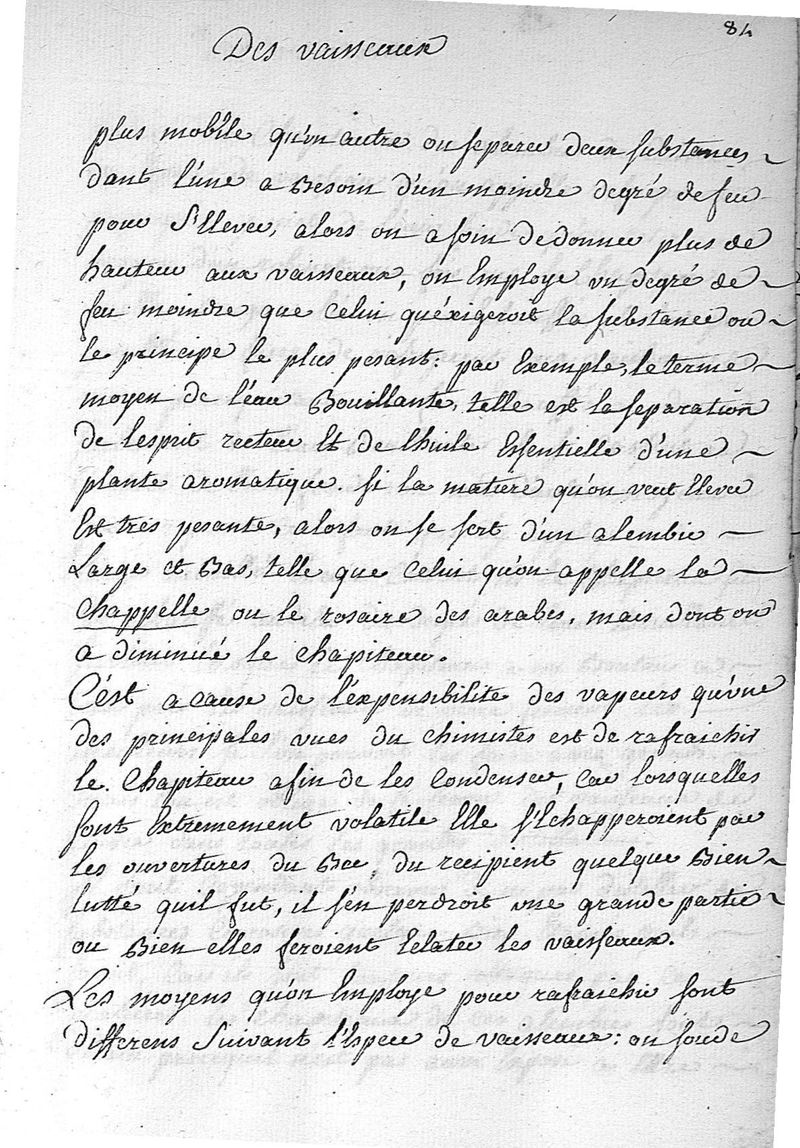 84
Des vaisseaux
plus mobile qu'un autre ou separer deux substances
dont l'une a Besoin d'un moindre degré de feu
pour S'Elever, alors on a soin de donner plus de
hauteur aux vaisseaux, on Employe un degré de
feu moindre que Celui quéxigeroit la substance ou
le principe le plus pesant: par Exemple, le terme
moyen de l'éau Bouillante, telle est la separation
de lesprit recteur Et de lhuile Essentielle d'une
plante aromatique. si la matiere qu'on veut Elever
Est très pesante, alors on se sert d'un alembic
Large et Bas, telle que Celui qu'on appelle la
Chappelle ou le rosaire des arabes, mais dont on
a diminué le chapiteau.
C'ést a cause de l'éxpensibilite des vapeurs qu'une
des principales vues du chimistes est de rafraichir
le Chapiteau afin de les Condenser, Car lorsquelles
sont Extremement volatile Elle s'Echapperoient par
les ouvertures du Bec, du recipient quelque Bien
lutté quil fut, il s'en perdroit une grande partie
ou Bien elles feroient Eclater les vaisseaux.
Les moyens qu'on Employe pour rafraichir sont
differens Suivant l'Espece de vaisseaux: on soude